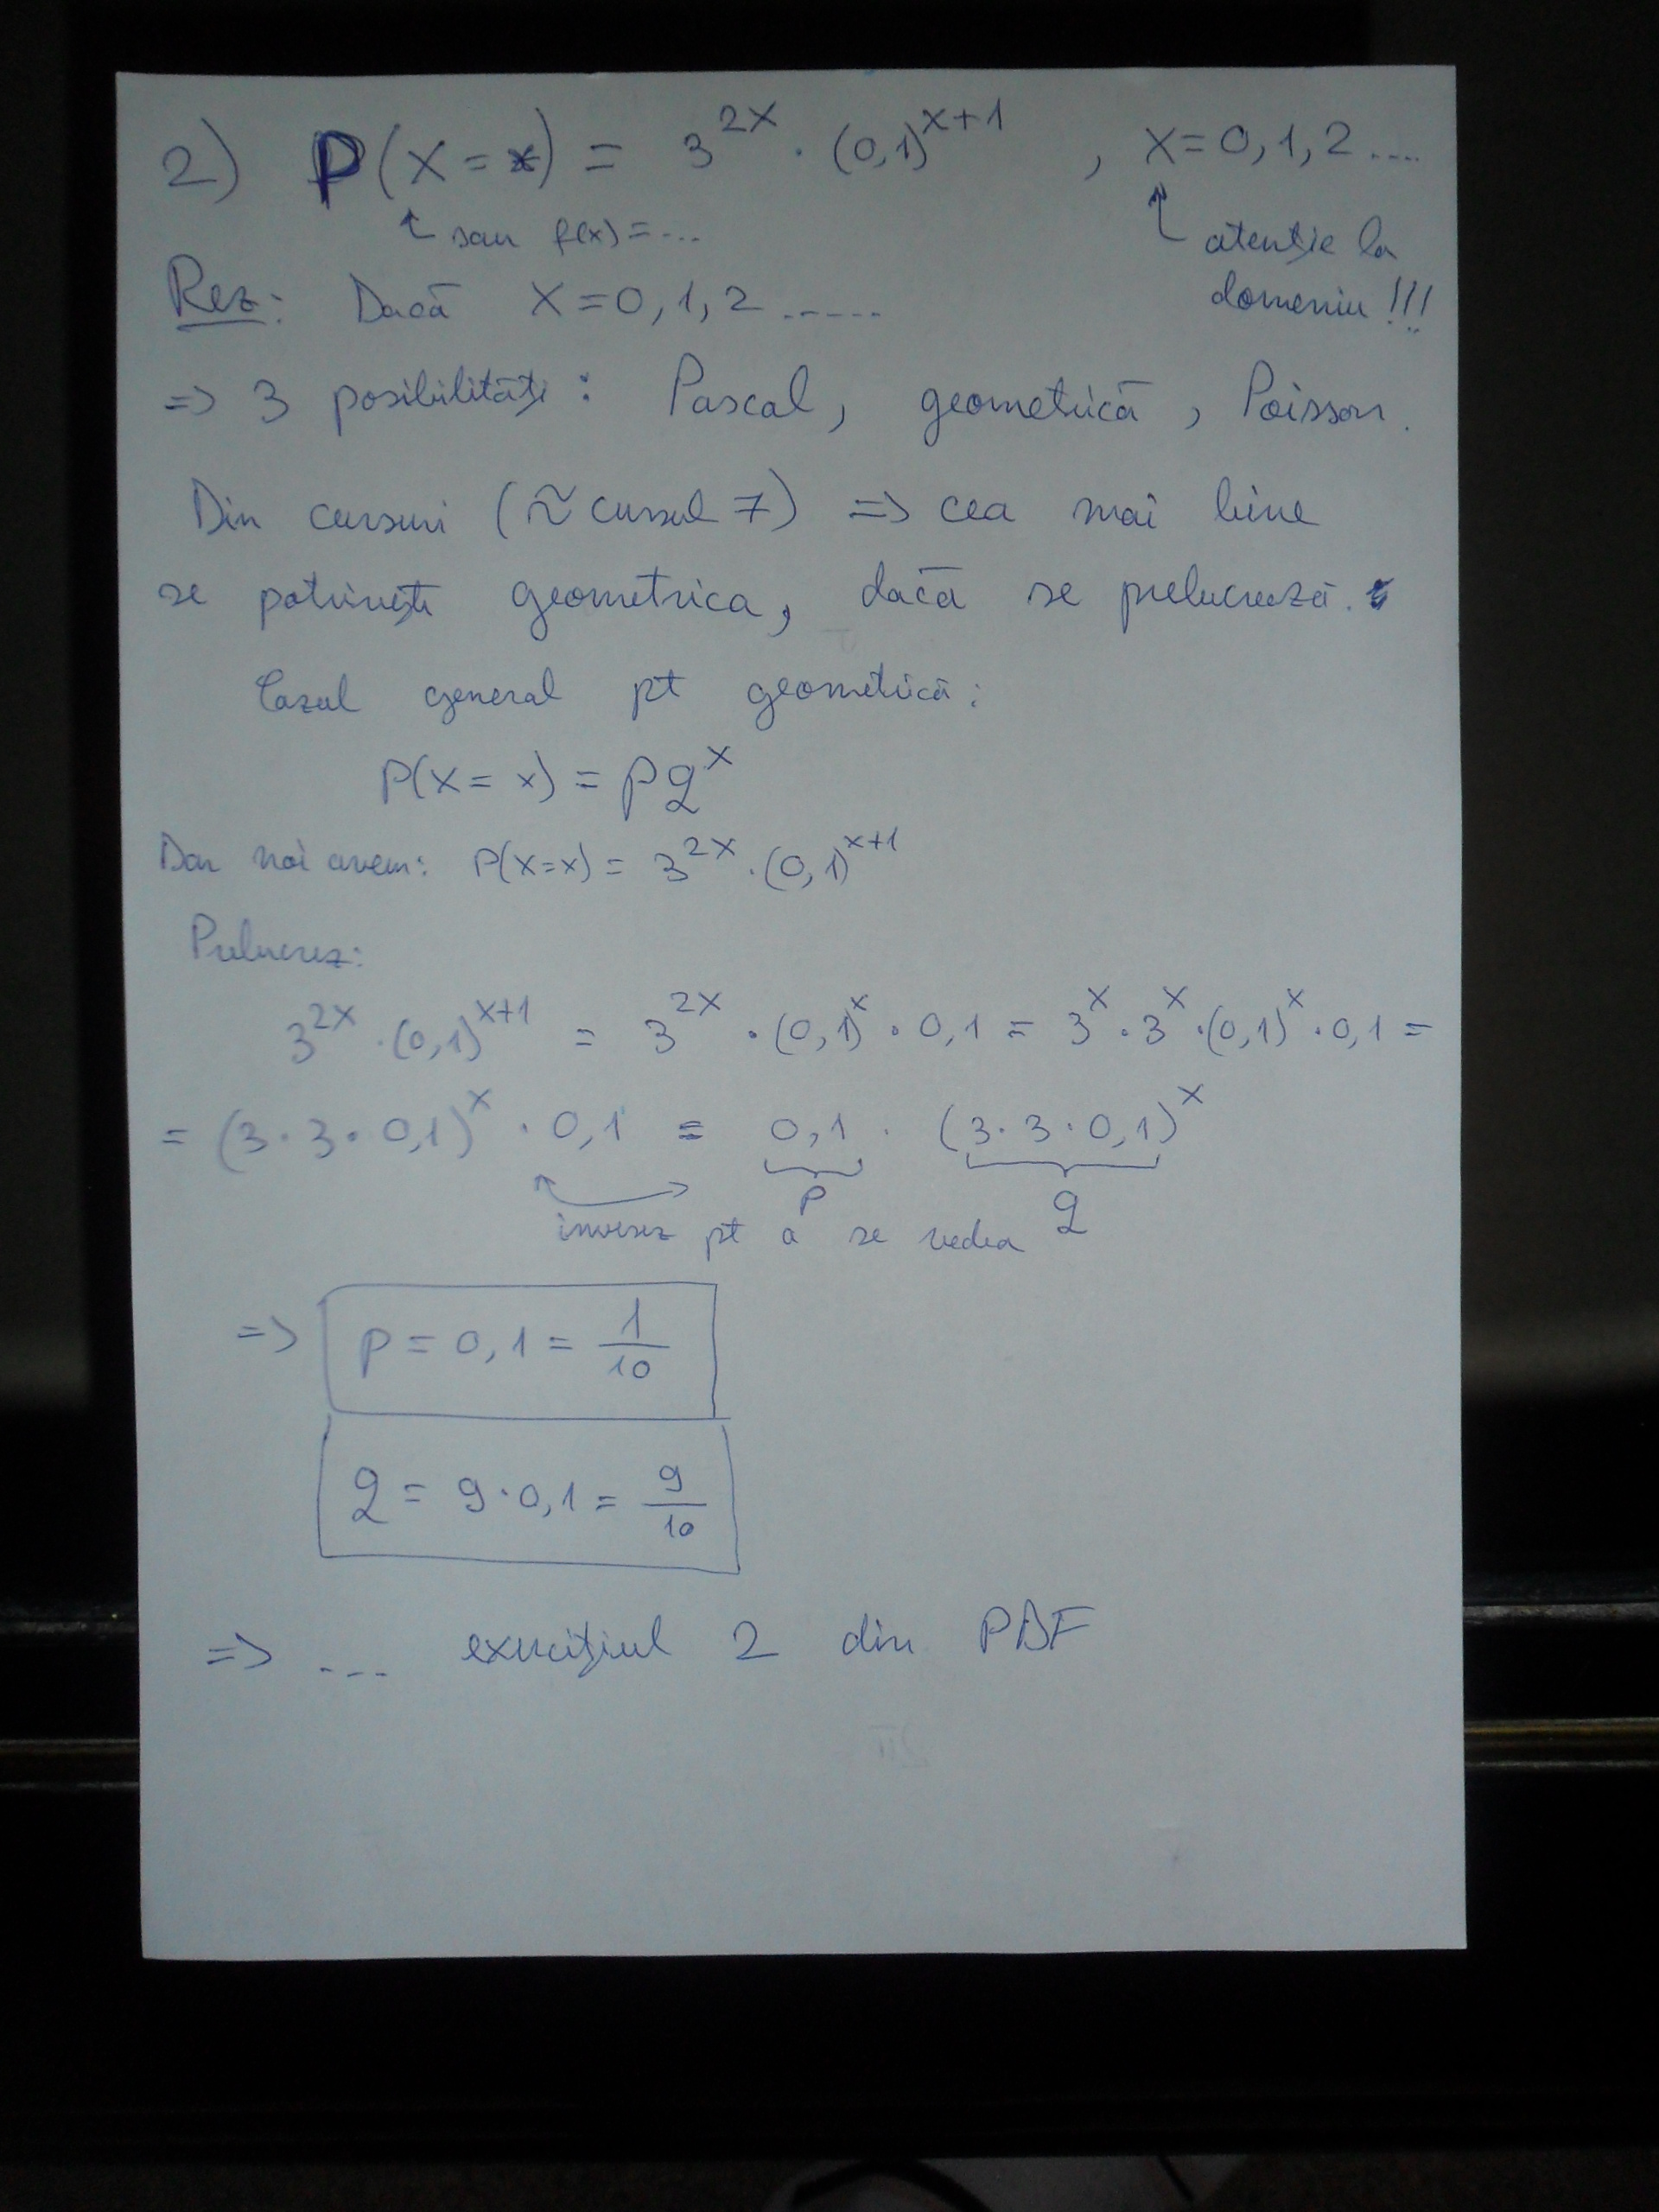 2) P(X = x) = 3^{2X} · (0,1)^{X+1} , X = 0, 1, 2 ....
↑ sau f(x) = ...
↑ atenție la
domeniu !!!
Rez: Dacă X = 0, 1, 2 ......
=> 3 posibilități: Pascal, geometrică, Poisson.
Din cursuri (≈ cursul 7) => cea mai bine
se potrivește geometrica, dacă se prelucrează.
Cazul general pt geometrică:
P(X = x) = p q^x
Dar noi avem: P(X=x) = 3^{2X} · (0,1)^{X+1}
Prelucrez:
3^{2X} · (0,1)^{X+1} = 3^{2X} · (0,1)^X · 0,1 = 3^X · 3^X · (0,1)^X · 0,1 =
= (3 · 3 · 0,1)^X · 0,1 = 0,1 · (3 · 3 · 0,1)^X
p q
inversez pt a se vedea
=> p = 0,1 = 1/10
q = 9 · 0,1 = 9/10
=> ... exercițiul 2 din PDF